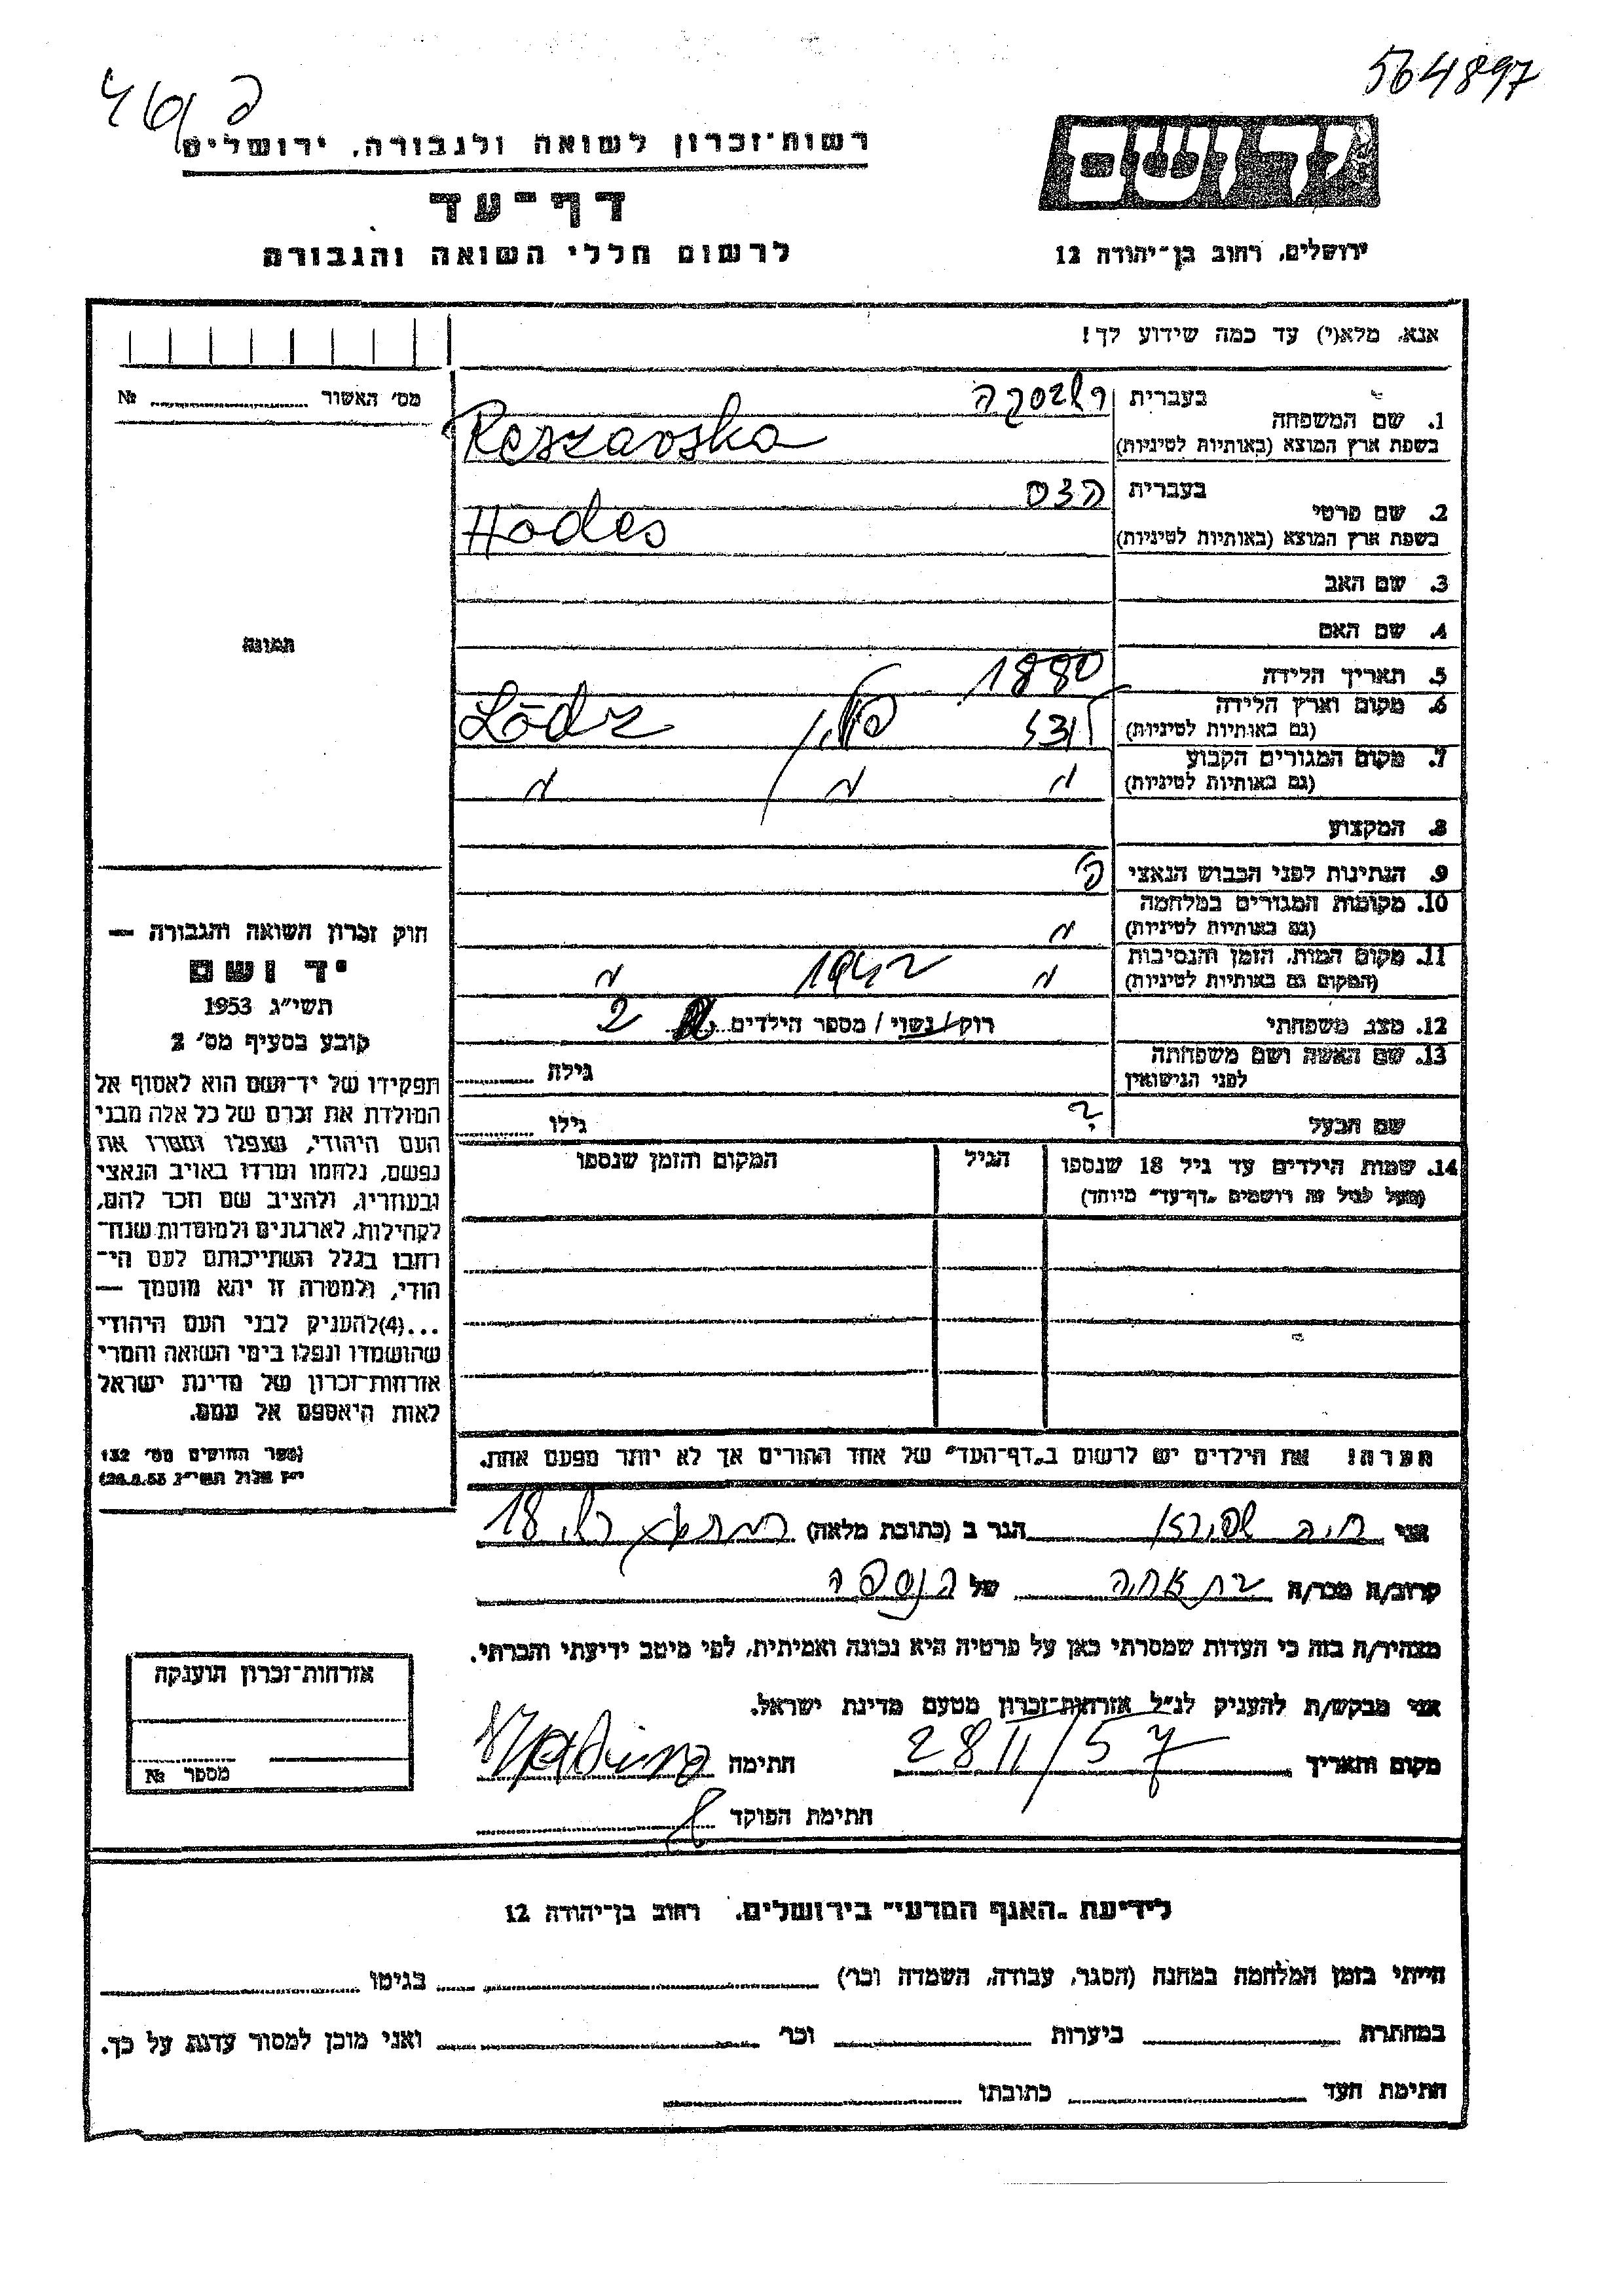 564897
רשות־זכרון לשואה ולגבורה, ירושלים
יד ושם
דף־עד
לרשום חללי השואה והגבורה
ירושלים, רחוב בן־יהודה 12
אנא, מלא(י) עד כמה שידוע לך!
מס' האשור №
1. שם המשפחה
בעברית
בשפת ארץ המוצא (באותיות לטיניות) Reszavska
2. שם פרטי
בעברית הדס
בשפת ארץ המוצא (באותיות לטיניות) Hodes
3. שם האב
4. שם האם
תמונה
5. תאריך הלידה 1880
6. מקום וארץ הלידה
(גם באותיות לטיניות) לודז Lódz
7. מקום המגורים הקבוע
(גם באותיות לטיניות) " " "
8. המקצוע
9. הנתינות לפני הכבוש הנאצי
10. מקומות המגורים במלחמה
(גם באותיות לטיניות) "
11. מקום המות, הזמן והנסיבות
(המקום גם באותיות לטיניות) " 1942 "
12. מצב משפחתי רווק/נשוי/ מספר הילדים 2
13. שם האשה ושם משפחתה
לפני הנישואין גילה
שם הבעל ? גילו
14. שמות הילדים עד גיל 18 שנספו הגיל המקום והזמן שנספו
(מעל לגיל זה רושמים "דף־עד" מיוחד)
חוק זכרון השואה והגבורה —
יד ושם
תשי"ג 1953
קובע בסעיף מס' 2
תפקידו של יד־ושם הוא לאסוף אל
המולדת את זכרם של כל אלה מבני
העם היהודי, שנפלו ומסרו את
נפשם, נלחמו ומרדו באויב הנאצי
ובעוזריו, ולהציב שם וזכר להם,
לקהילות, לארגונים ולמוסדות שנח־
רחבו בגלל השתייכותם לעם הי־
הודי, ולמטרה זו יהא מוסמך —
...(4)להעניק לבני העם היהודי
שהושמדו ונפלו בימי השואה והמרי
אזרחות־זכרון של מדינת ישראל
לאות היאספם אל עמם.
(ספר החוקים מס' 132
י"ז אלול תשי"ג 28.8.53)
הערה! את הילדים יש לרשום ב"דף־העד" של אחד ההורים אך לא יותר מפעם אחת.
אני חיה שפירא הגר ב (כתובת מלאה) 18
קרוב/ה מכר/ה בת אחיה של הנספה
מצהיר/ה בזה כי העדות שמסרתי כאן על פרטיה היא נכונה ואמיתית, לפי מיטב ידיעתי והכרתי.
אני מבקש/ת להעניק לנ"ל אזרחות־זכרון מטעם מדינת ישראל.
מקום ותאריך 28 II/57 חתימה
חתימת הפוקד
אזרחות־זכרון הוענקה
מספר №
לידיעת "האגף המדעי" בירושלים, רחוב בן־יהודה 12
הייתי בזמן המלחמה במחנה (הסגר, עבודה, השמדה וכו') בגיטו
במחתרת ביערות וכו' ואני מוכן למסור עדות על כך.
חתימת העד כתובתו